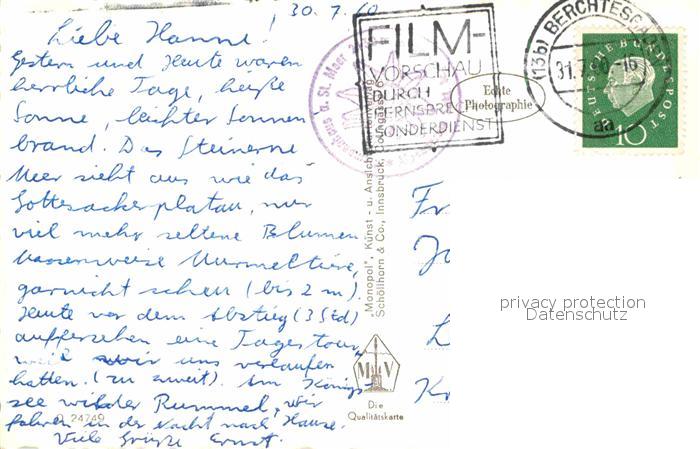 30.7.60
Liebe Hanne!
Gestern und Heute waren
herrliche Tage, heiße
Sonne, leichter Sonnen
brand. Das Steinerne
Meer sieht aus wie das
Gottesackerplatau, nur
viel mehr seltene Blumen
Massenweise Murmeltiere,
garnicht scheu (bis 2 m).
Heute vor dem Abstieg (3 Std)
aufgesehen eine Tagestour,
weil wir uns verlaufen
hatten. (zu zweit). Am Königs-
see wilder Rummel, wir
fahren in der Nacht nach Hause.
Viele Grüße Ernst.
FILM-
VORSCHAU
DURCH
FERNSPRECH
SONDERDIENST
Echte
Photographie
(13b) BERCHTESGA
31.7.60-16
aa
DEUTSCHE BUNDESPOST
10
u. St. Meer
„Monopol", Kunst- u. Ansichtskarten
Schöllhorn & Co., Innsbruck,
M V
Die
Qualitätskarte
D 24749
Fr
Jo
L
Kr
privacy protection
Datenschutz